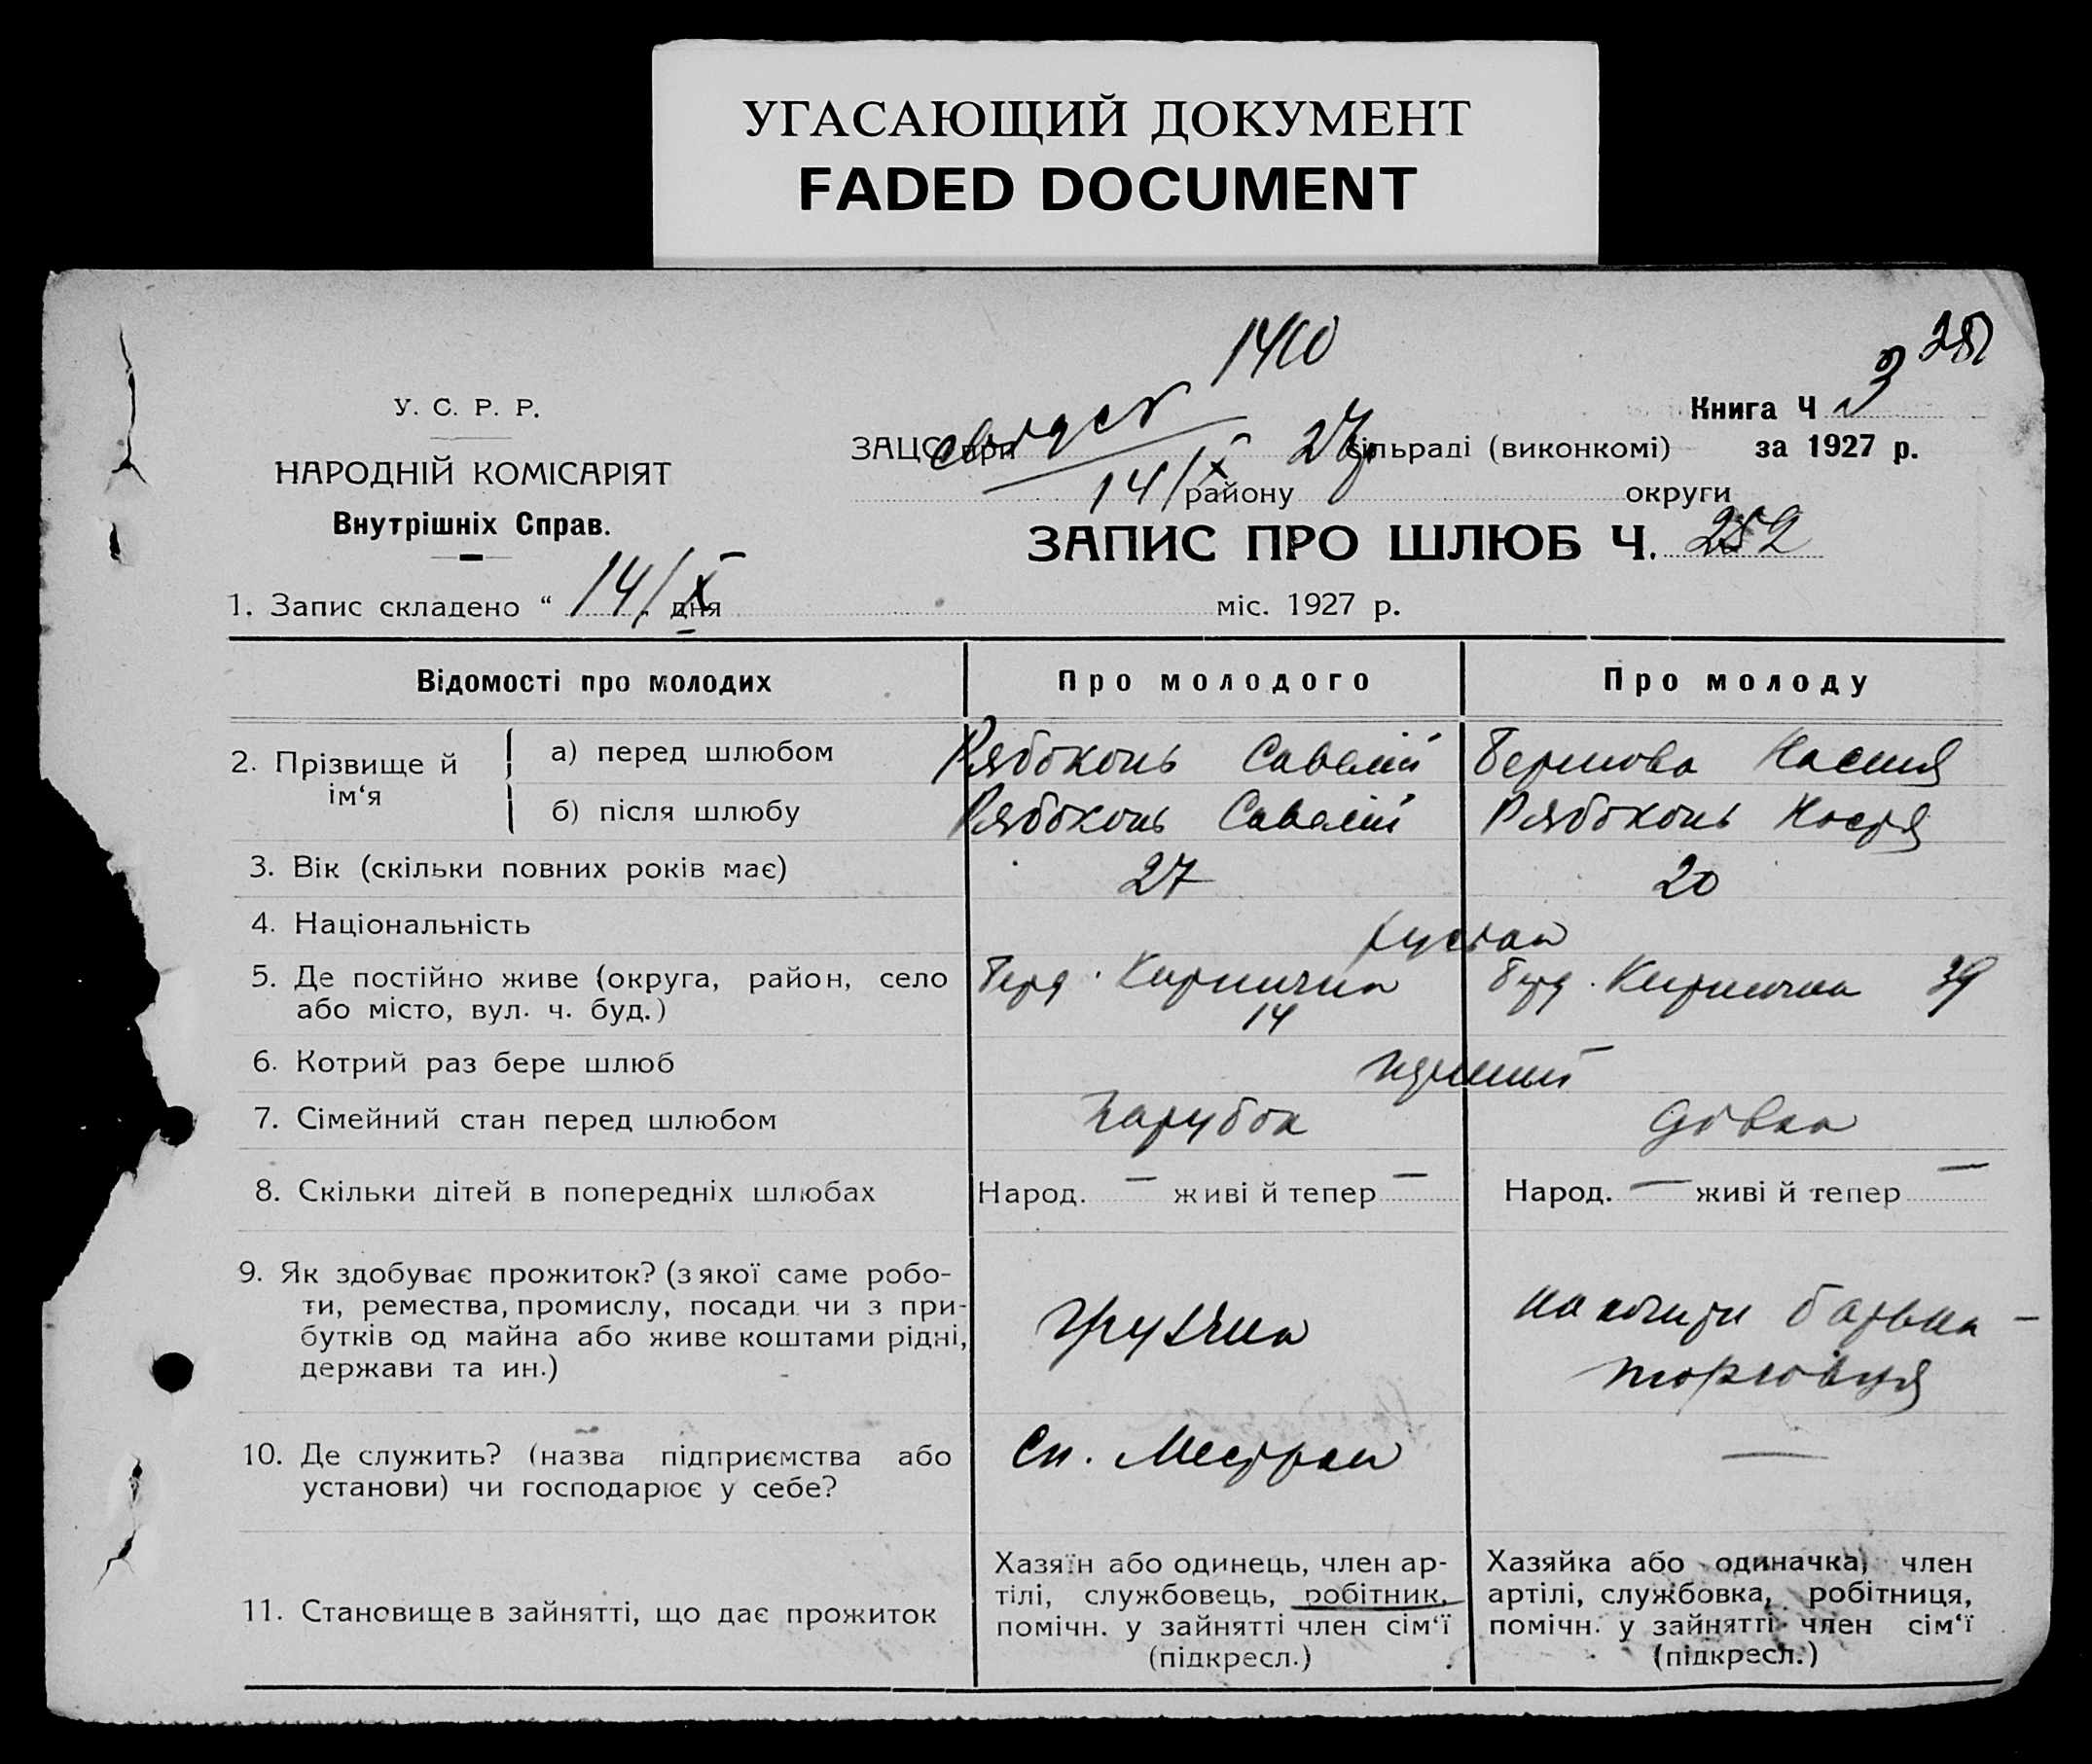 УГАСАЮЩИЙ ДОКУМЕНТ
FADED DOCUMENT
1410
У. С. Р. Р.
НАРОДНІЙ КОМІСАРІЯТ
Внутрішніх Справ.
Книга Ч 3
ЗАЦС при сільраді (виконкомі) за 1927 р.
14/X 27 р району округи
ЗАПИС ПРО ШЛЮБ Ч. 252
1. Запис складено “ 14/X „ дня міс. 1927 р.
Відомості про молодих Про молодого Про молоду
2. Прізвище й ім‘я а) перед шлюбом Рябоконь Савелій Настя
б) після шлюбу Рябоконь Савелій Рябоконь Настя
3. Вік (скільки повних років має) 27 20
4. Національність
5. Де постійно живе (округа, район, село Кирпична Кирпична 39
або місто, вул. ч. буд.) 14
6. Котрий раз бере шлюб перший
7. Сімейний стан перед шлюбом парубок дівка
8. Скільки дітей в попередніх шлюбах Народ. — живі й тепер — Народ. — живі й тепер —
9. Як здобуває прожиток? (з якої саме робо-
ти, ремества, промислу, посади чи з при-
бутків од майна або живе коштами рідні,
держави та ин.)
на кошти батька -
торговця
10. Де служить? (назва підприємства або
установи) чи господарює у себе?
—
11. Становище в зайнятті, що дає прожиток
Хазяїн або одинець, член ар-
тілі, службовець, робітник,
помічн. у зайнятті член сім‘ї
(підкресл.)
Хазяйка або одиначка, член
артілі, службовка, робітниця,
помічн. у зайнятті член сім‘ї
(підкресл.)